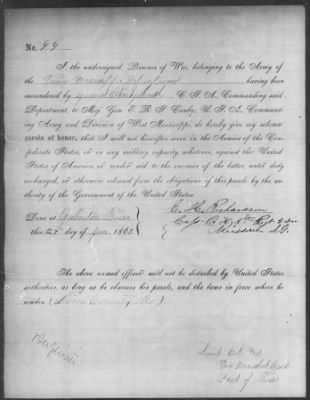 No. 99
I, the undersigned, Prisoner of War, belonging to the Army of
the Trans Mississippi Department having been
surrendered by General E. Kirby Smith, C. S. A., Commanding
said Department, to Maj. Gen. E. R. S. Canby, U. S. A., Command-
ing Army and Division of West Mississippi, do hereby give my solemn
parole of honor, that I will not hereafter serve in the Armies of the Con-
federate States, or in any military capacity whatever, against the United
States of America, or render aid to the enemies of the latter, until duly
exchanged, or otherwise released from the obligations of this parole by the au-
thority of the Government of the United States.
Done at Galveston Texas
this day of June 1865
E. H. Richardson
Capt. B Co 5th Regt
Missouri
The above named officer will not be disturbed by United States
authorities, as long as he observes his parole, and the laws in force where he
resides (County Mo)
Lieut Col
Pro Marshal
Dist of Texas